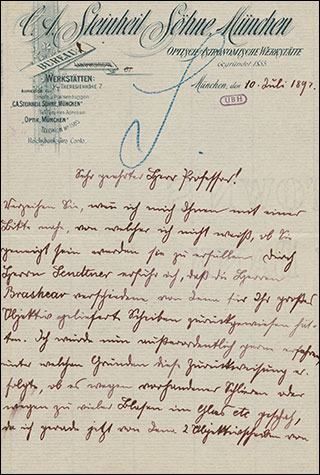 C. A. Steinheil Söhne, München
OPTISCH-ASTRONOMISCHE WERKSTÄTTE
Gegründet 1855.
BUREAU
WERKSTÄTTEN:
THERESIENHÖHE 7
"C.A. STEINHEIL SÖHNE, MÜNCHEN"
"OPTIK, MÜNCHEN"
Reichsbank-Giro-Conto.
München, den 10. Juli 1897.
UBH
Sehr geehrter Herr Professor!
Verzeihen Sie, wenn ich mich Ihnen mit einer
Bitte nahe, von welcher ich nicht weiß, ob Sie
geneigt sein werden sie zu erfüllen. Durch
Herrn Lendtner erfuhr ich, daß die Herren
Brashear verschiedene von denen für Ihr großes
Objektiv geliefert Scheiben zurückgewiesen hät-
ten. Ich würde nun außerordentlich gerne erfahren,
unter welchen Gründen diese Zurückweisung er-
folgte, ob es wegen vorhandener Schlieren oder
wegen zu vieler Blasen im Glas etc geschah,
da ich gerade jetzt von den 2 Objektivscheiben von